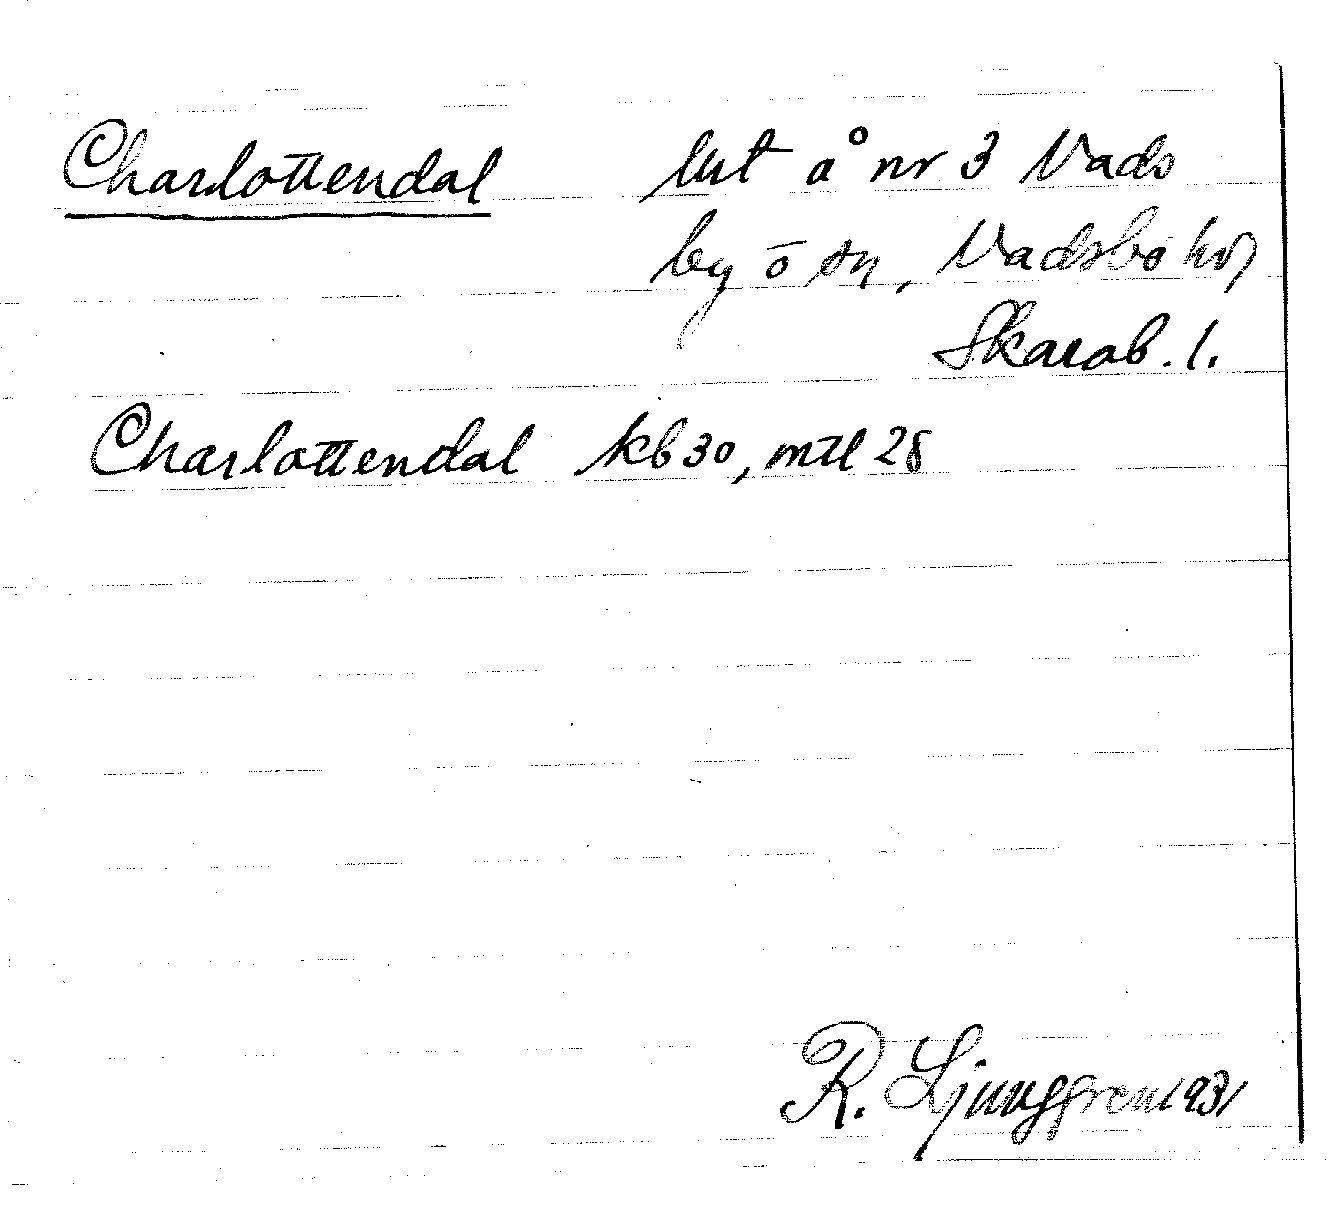 Charlottendal lht å nr 3 Vads
by o sn, Vadsbo hd
Skarab. l.
Charlottendal kb 30, mtl 28
R. Ljunggren 1931